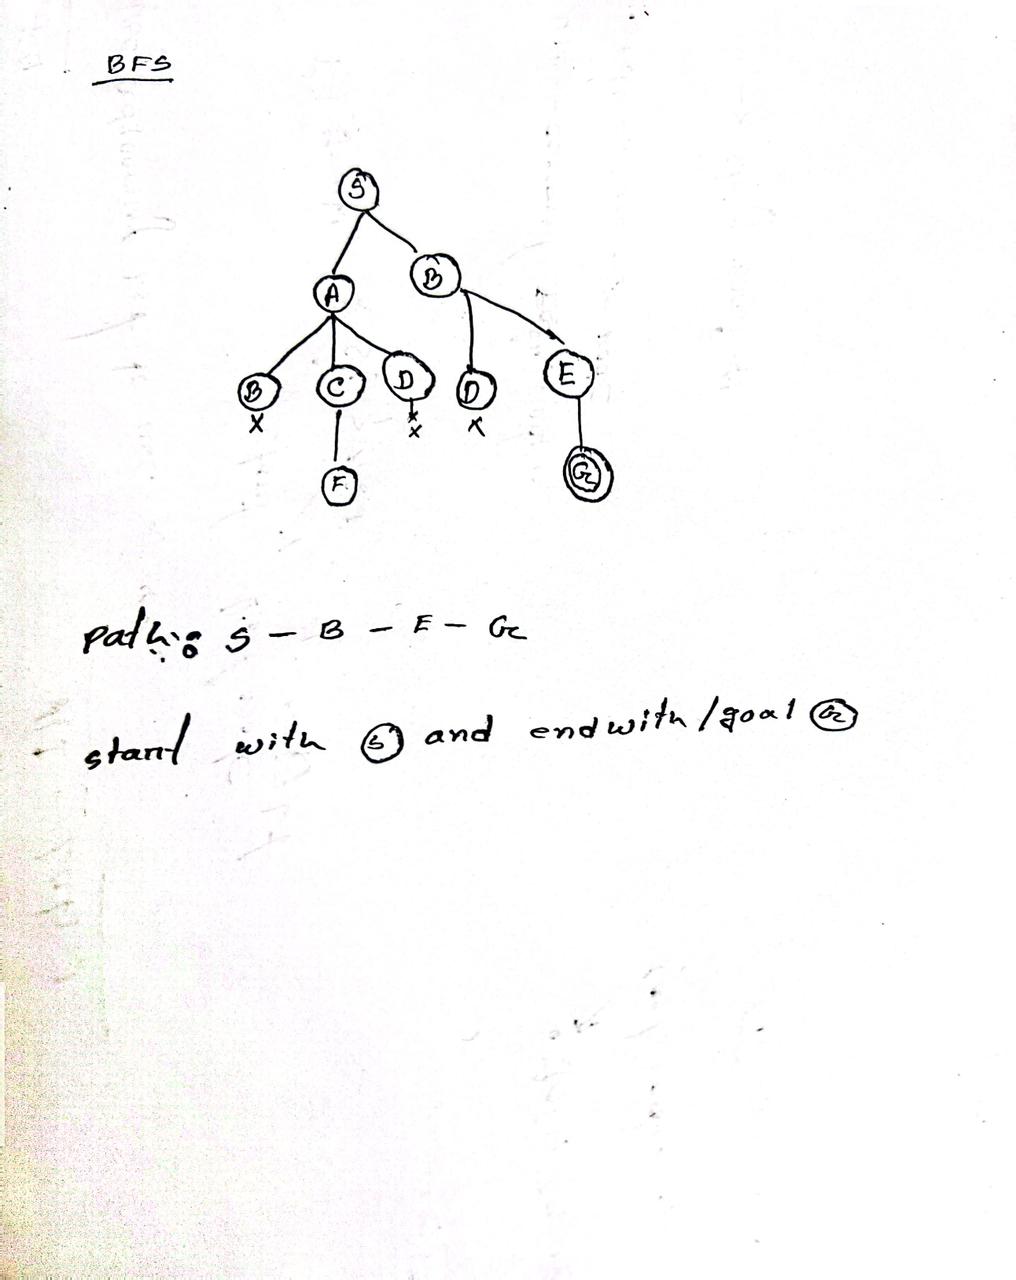 BFS
S
A B
B C D D E
x x x x
F G
path: S - B - E - G
start with S and end with/goal G